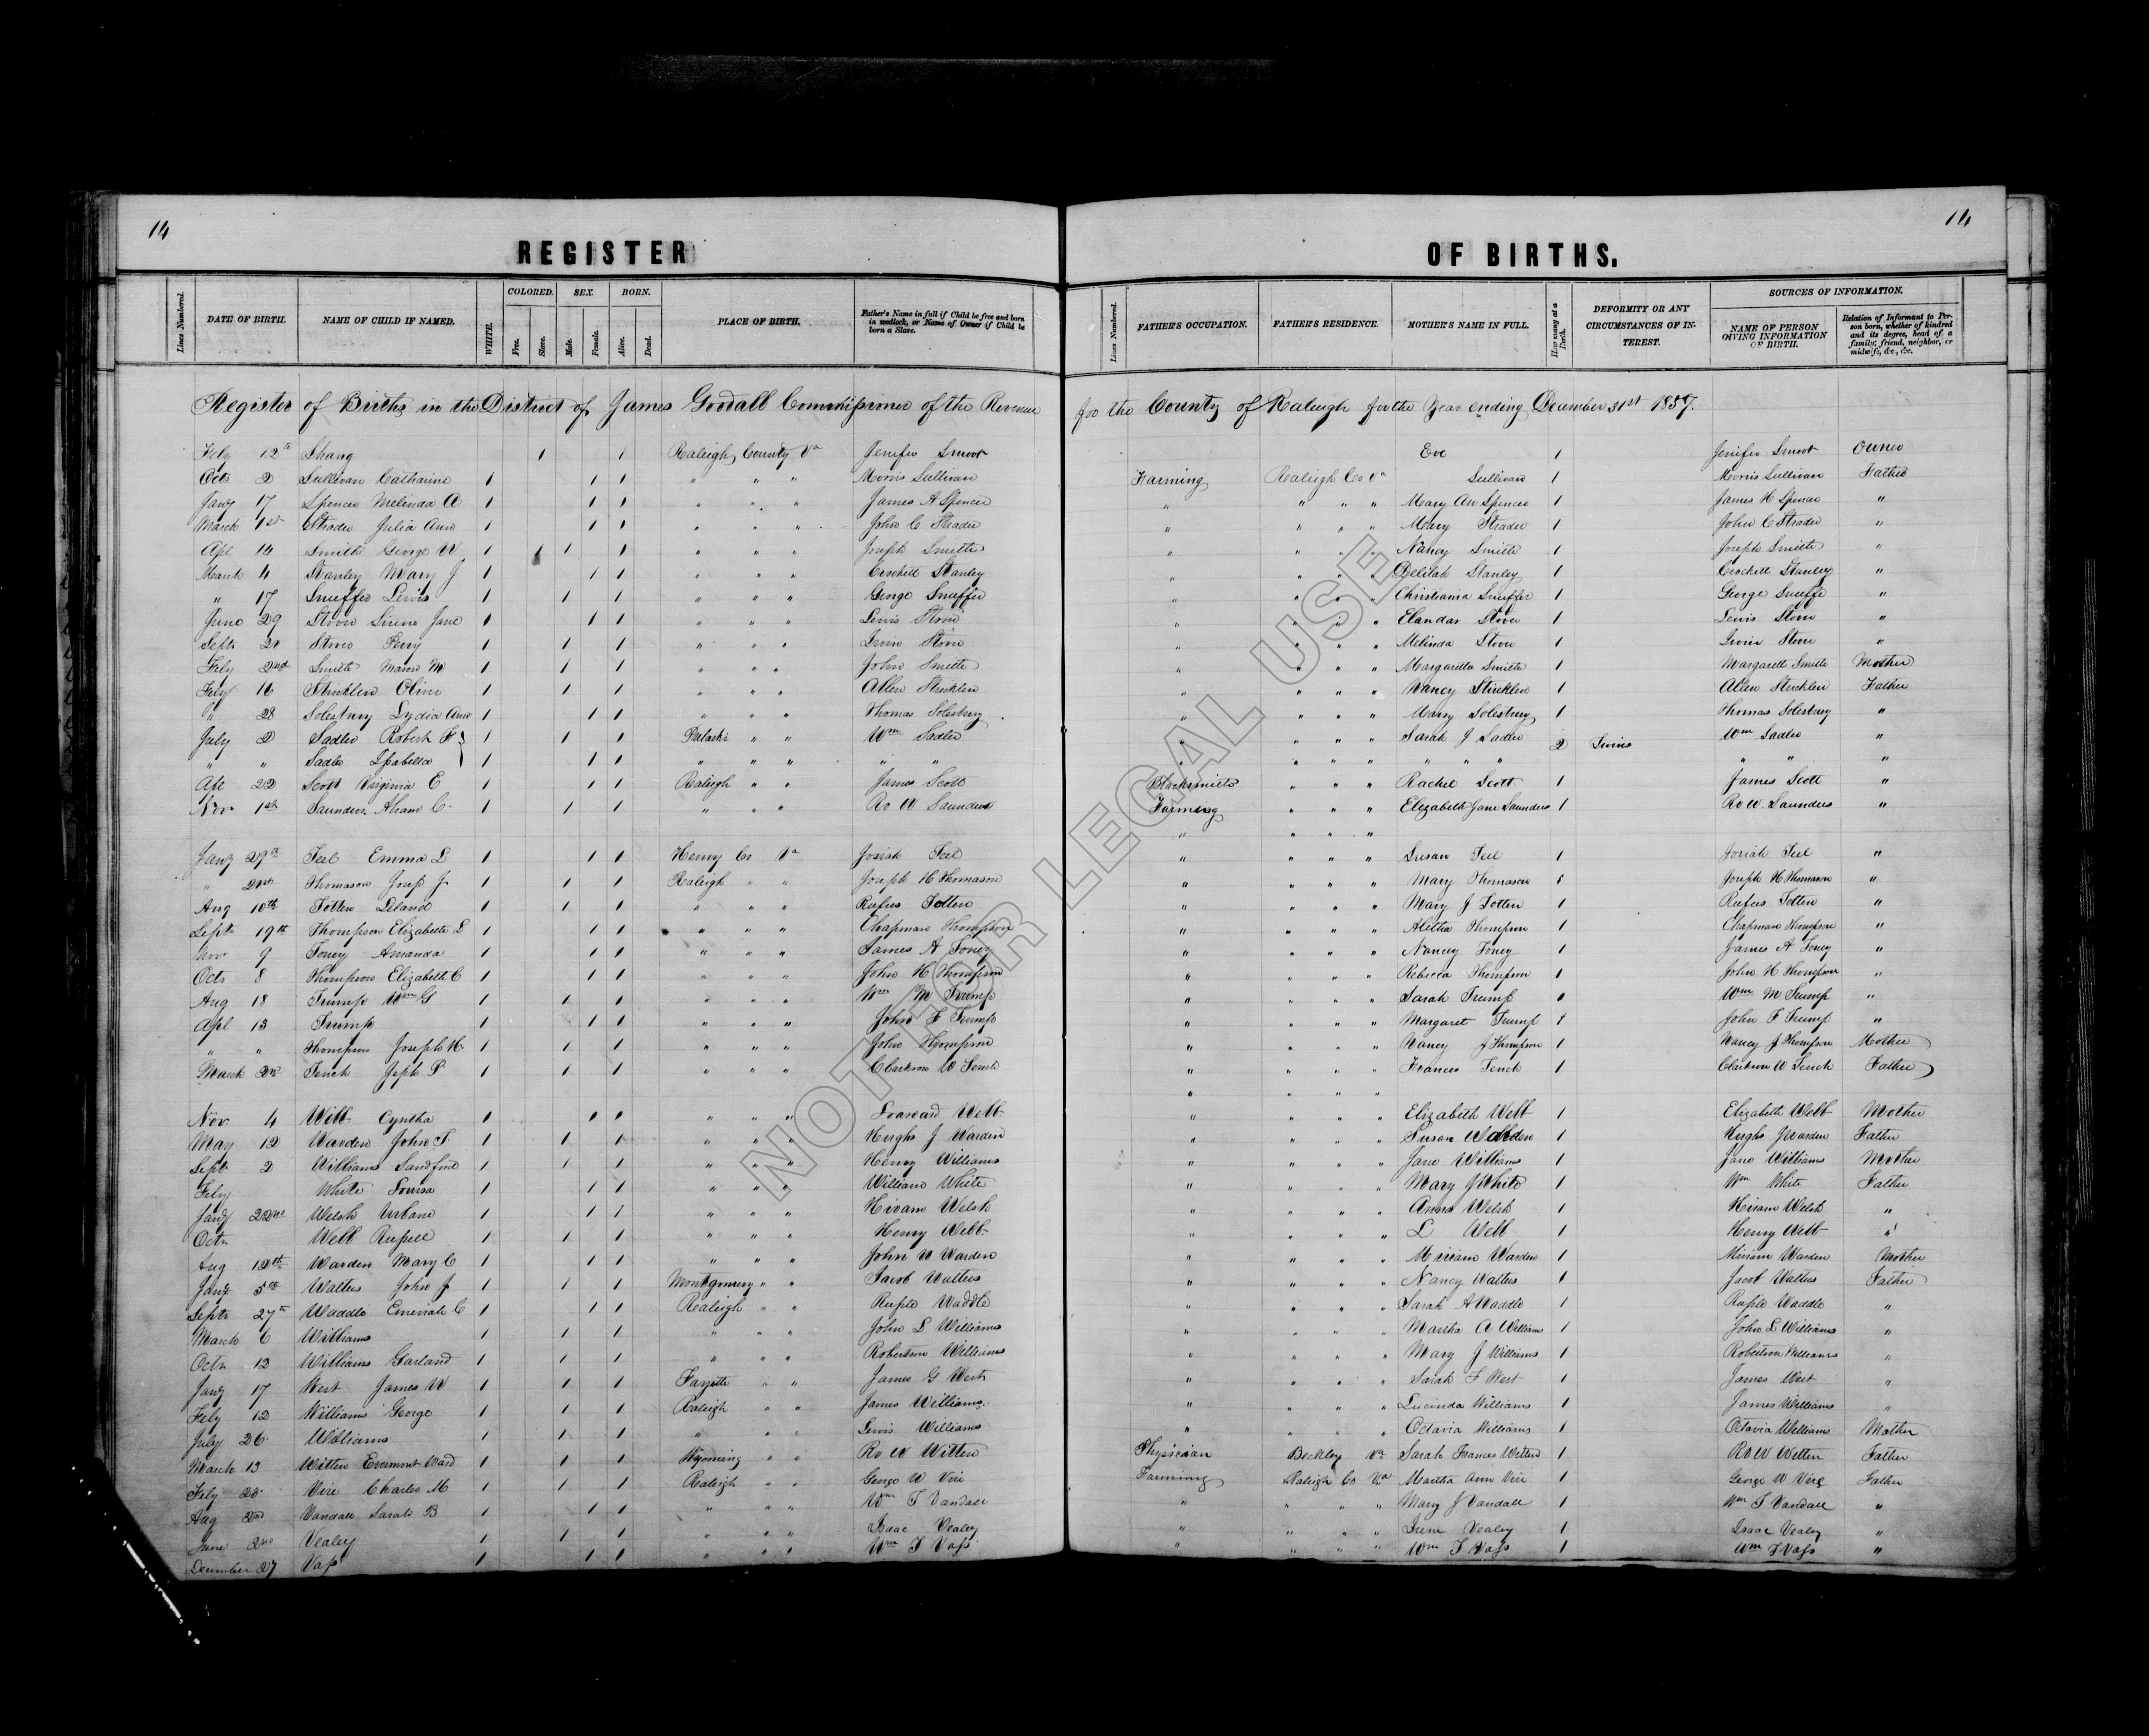 14
14
REGISTER OF BIRTHS.
Lines Numbered. DATE OF BIRTH. NAME OF CHILD IF NAMED. WHITE. COLORED. Free. Slave. SEX. Male. Female. BORN. Alive. Dead. PLACE OF BIRTH. Father's Name in full if Child be free and born in wedlock, or Name of Owner if Child be born a Slave. Lines Numbered. FATHER'S OCCUPATION. FATHER'S RESIDENCE. MOTHER'S NAME IN FULL. How many at a Birth. DEFORMITY OR ANY CIRCUMSTANCES OF INTEREST. SOURCES OF INFORMATION. NAME OF PERSON GIVING INFORMATION OF BIRTH. Relation of Informant to Person born, whether of kindred and its degree, head of a family; friend, neighbor, or midwife, &c., &c.
Register of Births in the District of James Goodall Commissioner of the Revenue for the County of Raleigh for the Year ending December 31st 1857.
Feby 12th Shang 1 1 Raleigh County Va Jenifer Smoot Eve 1 Jenifer Smoot Owner
Octr 2 Sullivan Catharine 1 1 1 " " " Morris Sullivan Farming Raleigh Co Va Sullivan 1 Morris Sullivan Father
Jany 17 Spencer Melinda A 1 1 1 " " " James H Spencer " " " " Mary An Spencer 1 James H Spencer "
March 1st Strader Julia Ann 1 1 1 " " " John C Strader " " " " Mary Strader 1 John C Strader "
Apl 14 Smith George W 1 1 1 " " " Joseph Smith " " " " Nancy Smith 1 Joseph Smith "
March 4 Stanley Mary J 1 1 1 " " " Crockett Stanley " " " " Delilah Stanley 1 Crockett Stanley "
" 17 Snuffer Lewis 1 1 1 " " " George Snuffer " " " " Christiania Snuffer 1 George Snuffer "
June 29 Stover Sirena Jane 1 1 1 " " " Lewis Stover " " " " Elandar Stover 1 Lewis Stover "
Sept Stover Perry 1 1 1 " " " Irvin Stover " " " " Melinda Stover 1 Irvin Stover "
Feby 2nd Smith Marion M 1 1 1 " " " John Smith " " " " Margaretta Smith 1 Margarett Smith Mother
Feby 16 Stricklen Oliver 1 1 1 " " " Allen Stricklen " " " " Nancy Stricklen 1 Allen Stricklen Father
" 28 Solesbury Lydia Ann 1 1 1 " " " Thomas Solesbury " " " " Mary Solesbury 1 Thomas Solesbury "
July 2 Sadler Robert F 1 1 1 Pulaski " " Wm Sadler " " " " Sarah J Sadler 2 Twins Wm Sadler "
" " Sadler Isabella 1 1 1 " " " " " " " " " " " " " " "
Apl 22 Scott Virginia E 1 1 1 Raleigh " " James Scott Blacksmith " " " Rachel Scott 1 James Scott "
Nov 1st Saunders Abram C. 1 1 1 " " " Ro W Saunders Farming " " " Elizabeth Jane Saunders 1 Ro W Saunders "
" " " "
Jany 27th Teel Emma L 1 1 1 Henry Co Va Josiah Teel " " " " Susan Teel 1 Josiah Teel "
" 21st Thomason Josep J 1 1 1 Raleigh " " Joseph H Thomason " " " " Mary Thomason 1 Joseph H Thomason "
Aug 10th Totten Leland 1 1 1 " " " Rufus Totten " " " " Mary J Totten 1 Rufus Totten "
Sept 19th Thompson Elizabeth L 1 1 1 " " " Chapman Thompson " " " " Alitha Thompson 1 Chapman Thompson "
Nov 9 Toney Amanda 1 1 1 " " " James A Toney " " " " Nancy Toney 1 James A Toney "
Octr 8 Thompson Elizabeth C 1 1 1 " " " John H Thompson " " " " Rebecca Thompson 1 John H Thompson "
Aug 18 Trump Wm G 1 1 1 " " " Wm M Trump " " " " Sarah Trump 1 Wm M Trump "
Apl 13 Trump 1 1 1 " " " John F Trump " " " " Margaret Trump 1 John F Trump "
" " Thompson Joseph H. 1 1 1 " " " John Thompson " " " " Nancy J Thompson 1 Nancy J Thompson Mother
March 2nd Tench Jeph P 1 1 1 " " " Clarkson W Tench " " " " Frances Tench 1 Clarkson W Tench Father
" " " "
Nov 4 Webb Cyntha 1 1 1 " " " Webb " " " " Elizabeth Webb 1 Elizabeth Webb Mother
May 12 Warden John S. 1 1 1 " " " Hughs J Warden " " " " Susan Warden 1 Hughs J Warden Father
Sept 2 Williams Sandford 1 1 1 " " " Henry Williams " " " " Jane Williams 1 Jane Williams Mother
Feby White Louisa 1 1 1 " " " William White " " " " Mary J White 1 Wm White Father
Jany 22nd Welsh 1 1 1 " " " Hiram Welsh " " " " Anna Welsh 1 Hiram Welsh "
Octr Webb Russell 1 1 1 " " " Henry Webb " " " " L Webb 1 Henry Webb "
Aug 12th Warden Mary C 1 1 1 " " " John W Warden " " " " Miriam Warden 1 Miriam Warden Mother
Jany 5th Walters John J 1 1 1 Montgomery " " Jacob Walters " " " " Nancy Walters 1 Jacob Walters Father
Septr 27th Waddle C 1 1 1 Raleigh " " Rufus Waddle " " " " Sarah A Waddle 1 Waddle "
March 6 Williams 1 1 1 " " " John L Williams " " " " Martha A Williams 1 John L Williams "
Octr 12 Williams Garland 1 1 1 " " " Robertson Williams " " " " Mary J Williams 1 Robertson Williams "
Jany 17 West James W 1 1 1 Fayette " " James G West " " " " Sarah F West 1 James West "
Feby 12 Williams George 1 1 1 Raleigh " " James Williams " " " " Lucinda Williams 1 James Williams "
July 26 Williams 1 1 1 " " " Lewis Williams " " " " Octavia Williams 1 Octavia Williams Mother
March 13 Witten Ward 1 1 1 Wyoming " " Ro W Witten Physician Beckley Va Sarah Frances Witten 1 Ro W Witten Father
Feby Vire Charles M 1 1 1 Raleigh " " George W Vire Farming Raleigh Co Va Martha Ann Vire 1 George W Vire Father
Aug 2nd Vandall Sarah B 1 1 1 " " " Wm T Vandall " " " " Mary J Vandall 1 Wm T Vandall "
June 2nd Vealey 1 1 1 " " " Isaac Vealey " " " " Irene Vealey 1 Isaac Vealey "
December 27 Vass 1 1 1 " " " Wm T Vass " " " " Wm T Vass 1 Wm T Vass "
NOT FOR LEGAL USE